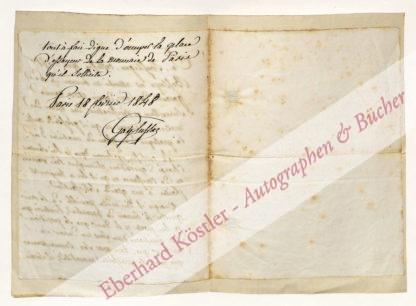 tout à fait digne d'occuper la place
d'essayeur de la monnaie de Paris
qu'il sollicite.
Paris 18 février 1848
Gay-Lussac
Eberhard Köstler - Autographen & Bücher